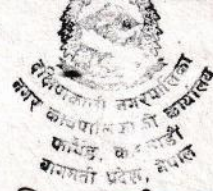 दक्षिणकाली नगरपालिका
नगर कार्यपालिकाको कार्यालय
फर्पिङ, काठमाडौं
बागमती प्रदेश, नेपाल